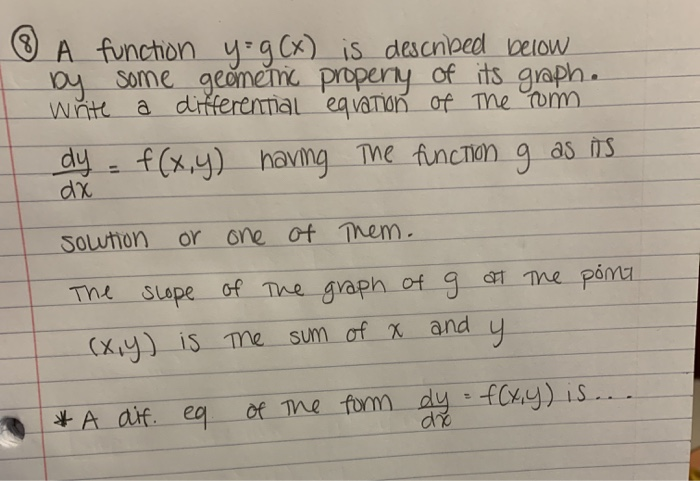 ⑧ A function y=g(x) is described below
by some geometric property of its graph.
Write a differential equation of the form
dy/dx = f(x,y) having the function g as its
solution or one of them.
The slope of the graph of g at the point
(x,y) is the sum of x and y
* A dif. eq of the form dy/dx = f(x,y) is ...